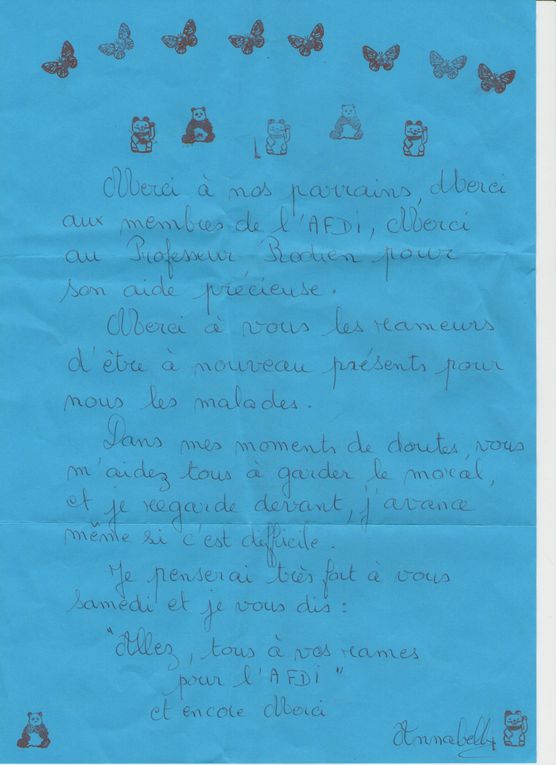 Merci à nos parrains, Merci
aux membres de l'AFDI, Merci
au Professeur Rodien pour
son aide précieuse.
Merci à vous les rameurs
d'être à nouveau présents pour
nous les malades.
Dans mes moments de doutes, vous
m'aidez tous à garder le moral,
et je regarde devant, j'avance
même si c'est difficile.
Je penserai très fort à vous
samedi et je vous dis :
"Allez, tous à vos rames
pour l'AFDI"
et encore Merci
Annabelle